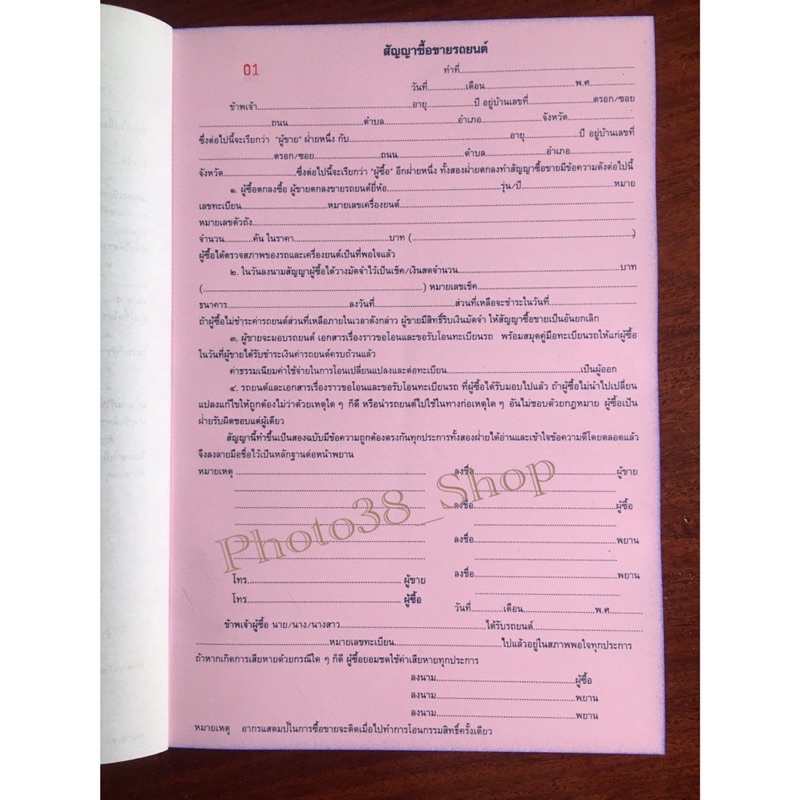 สัญญาซื้อขายรถยนต์
01
ทำที่..........
วันที่..........เดือน..........พ.ศ...........
ข้าพเจ้า..........อายุ..........ปี อยู่บ้านเลขที่..........ตรอก/ซอย
..........ถนน..........ตำบล..........อำเภอ..........จังหวัด..........
ซึ่งต่อไปนี้จะเรียกว่า "ผู้ขาย" ฝ่ายหนึ่ง กับ..........อายุ..........ปี อยู่บ้านเลขที่
..........ตรอก/ซอย..........ถนน..........ตำบล..........อำเภอ..........
จังหวัด..........ซึ่งต่อไปนี้จะเรียกว่า "ผู้ซื้อ" อีกฝ่ายหนึ่ง ทั้งสองฝ่ายตกลงทำสัญญาซื้อขายมีข้อความดังต่อไปนี้
๑. ผู้ซื้อตกลงซื้อ ผู้ขายตกลงขายรถยนต์ยี่ห้อ..........รุ่น/ปี..........หมาย
เลขทะเบียน..........หมายเลขเครื่องยนต์..........
หมายเลขตัวถัง..........
จำนวน..........คัน ในราคา..........บาท (..........)
ผู้ซื้อได้ตรวจสภาพของรถและเครื่องยนต์เป็นที่พอใจแล้ว
๒. ในวันลงนามสัญญาผู้ซื้อได้วางมัดจำไว้เป็นเช็ค/เงินสดจำนวน..........บาท
(..........) หมายเลขเช็ค..........
ธนาคาร..........ลงวันที่..........ส่วนที่เหลือจะชำระในวันที่..........
ถ้าผู้ซื้อไม่ชำระค่ารถยนต์ส่วนที่เหลือภายในเวลาดังกล่าว ผู้ขายมีสิทธิ์ริบเงินมัดจำ ให้สัญญาซื้อขายเป็นอันยกเลิก
๓. ผู้ขายจะมอบรถยนต์ เอกสารเรื่องราวขอโอนและขอรับโอนทะเบียนรถ พร้อมสมุดคู่มือทะเบียนรถให้แก่ผู้ซื้อ
ในวันที่ผู้ขายได้รับชำระเงินค่ารถยนต์ครบถ้วนแล้ว
ค่าธรรมเนียมค่าใช้จ่ายในการโอนเปลี่ยนแปลงและต่อทะเบียน..........เป็นผู้ออก
๔. รถยนต์และเอกสารเรื่องราวขอโอนและขอรับโอนทะเบียนรถ ที่ผู้ซื้อได้รับมอบไปแล้ว ถ้าผู้ซื้อไม่นำไปเปลี่ยน
แปลงแก้ไขให้ถูกต้องไม่ว่าด้วยเหตุใด ๆ ก็ดี หรือนำรถยนต์ไปใช้ในทางก่อเหตุใด ๆ อันไม่ชอบด้วยกฎหมาย ผู้ซื้อเป็น
ฝ่ายรับผิดชอบแต่ผู้เดียว
สัญญานี้ทำขึ้นเป็นสองฉบับมีข้อความถูกต้องตรงกันทุกประการทั้งสองฝ่ายได้อ่านและเข้าใจข้อความดีโดยตลอดแล้ว
จึงลงลายมือชื่อไว้เป็นหลักฐานต่อหน้าพยาน
หมายเหตุ ..........ลงชื่อ..........ผู้ขาย
ลงชื่อ..........ผู้ซื้อ
Photo38_Shop
ลงชื่อ..........พยาน
ลงชื่อ..........พยาน
โทร...........ผู้ขาย
โทร...........ผู้ซื้อ
วันที่..........เดือน..........พ.ศ...........
ข้าพเจ้าผู้ซื้อ นาย/นาง/นางสาว..........ได้รับรถยนต์..........
..........หมายเลขทะเบียน..........ไปแล้วอยู่ในสภาพพอใจทุกประการ
ถ้าหากเกิดการเสียหายด้วยกรณีใด ๆ ก็ดี ผู้ซื้อยอมชดใช้ค่าเสียหายทุกประการ
ลงนาม..........ผู้ซื้อ
ลงนาม..........พยาน
ลงนาม..........พยาน
หมายเหตุ อากรแสตมป์ในการซื้อขายจะติดเมื่อไปทำการโอนกรรมสิทธิ์ครั้งเดียว